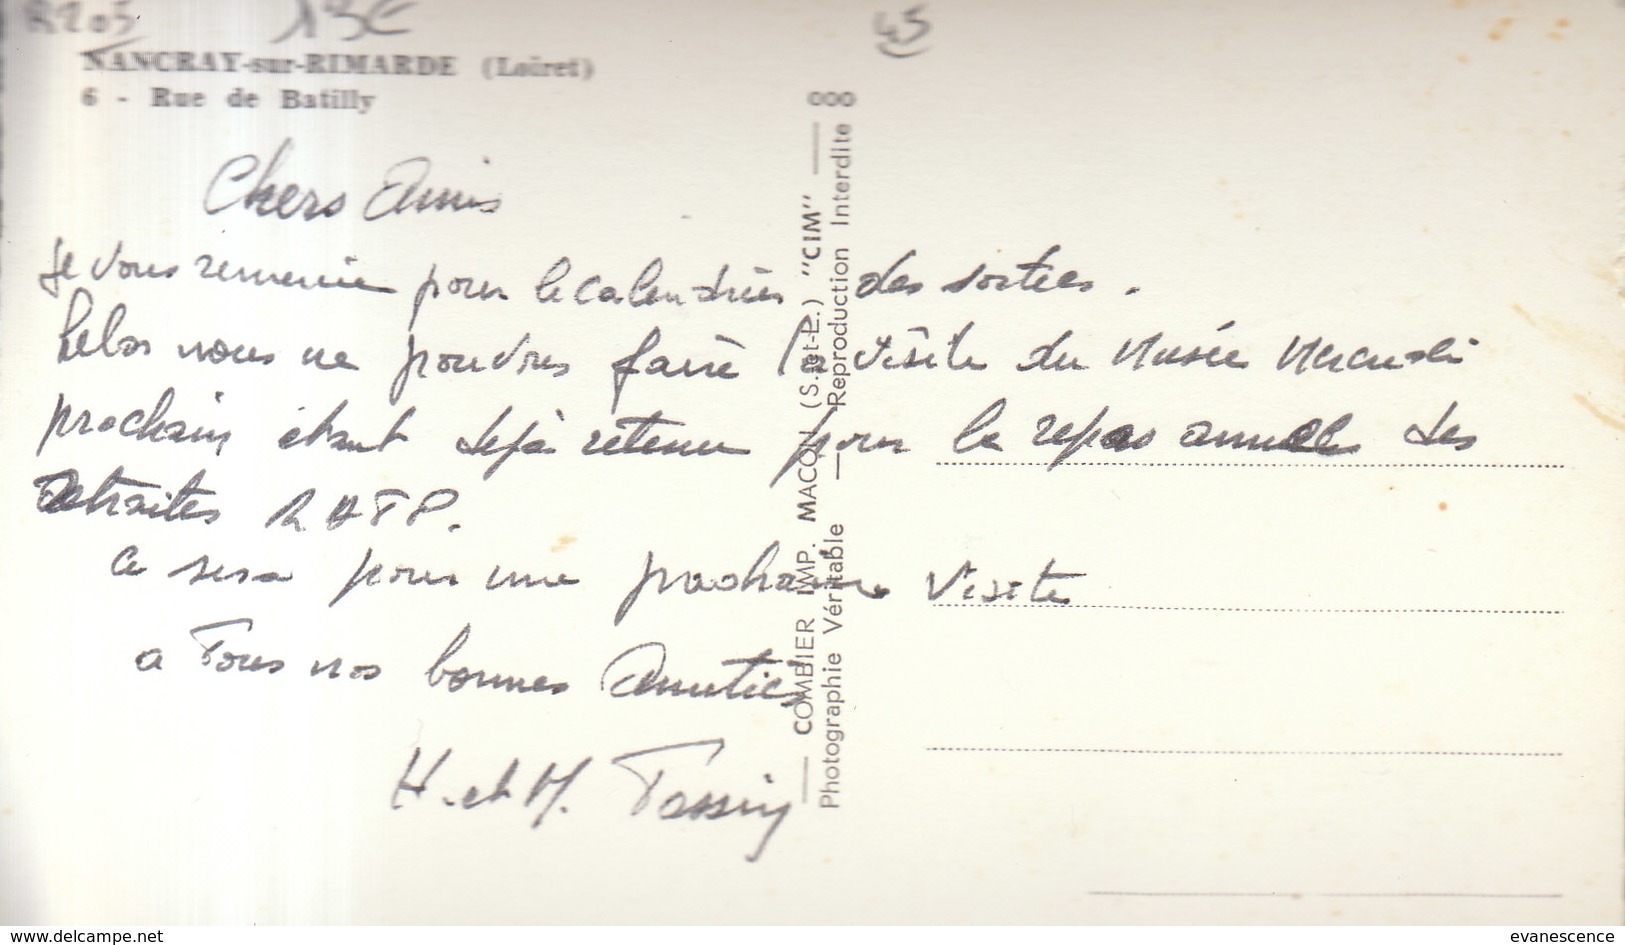 R203 13€ 45
NANCRAY-sur-RIMARDE (Loiret)
6 - Rue de Batilly
Chers Amis
Je vous remercie pour le calendrier des sorties.
helas nous ne pouvons faire la visite du Musée Mercredi
prochain étant déjà retenu pour le repas annuel des
retraites RATP.
Ce sera pour une prochaine visite
a Tous nos bonnes Amitiés
H. et M. Tassin
COMBIER IMP. MACON (S.-et-L.) "CIM"
Photographie Véritable — Reproduction Interdite
000
www.delcampe.net
evanescence